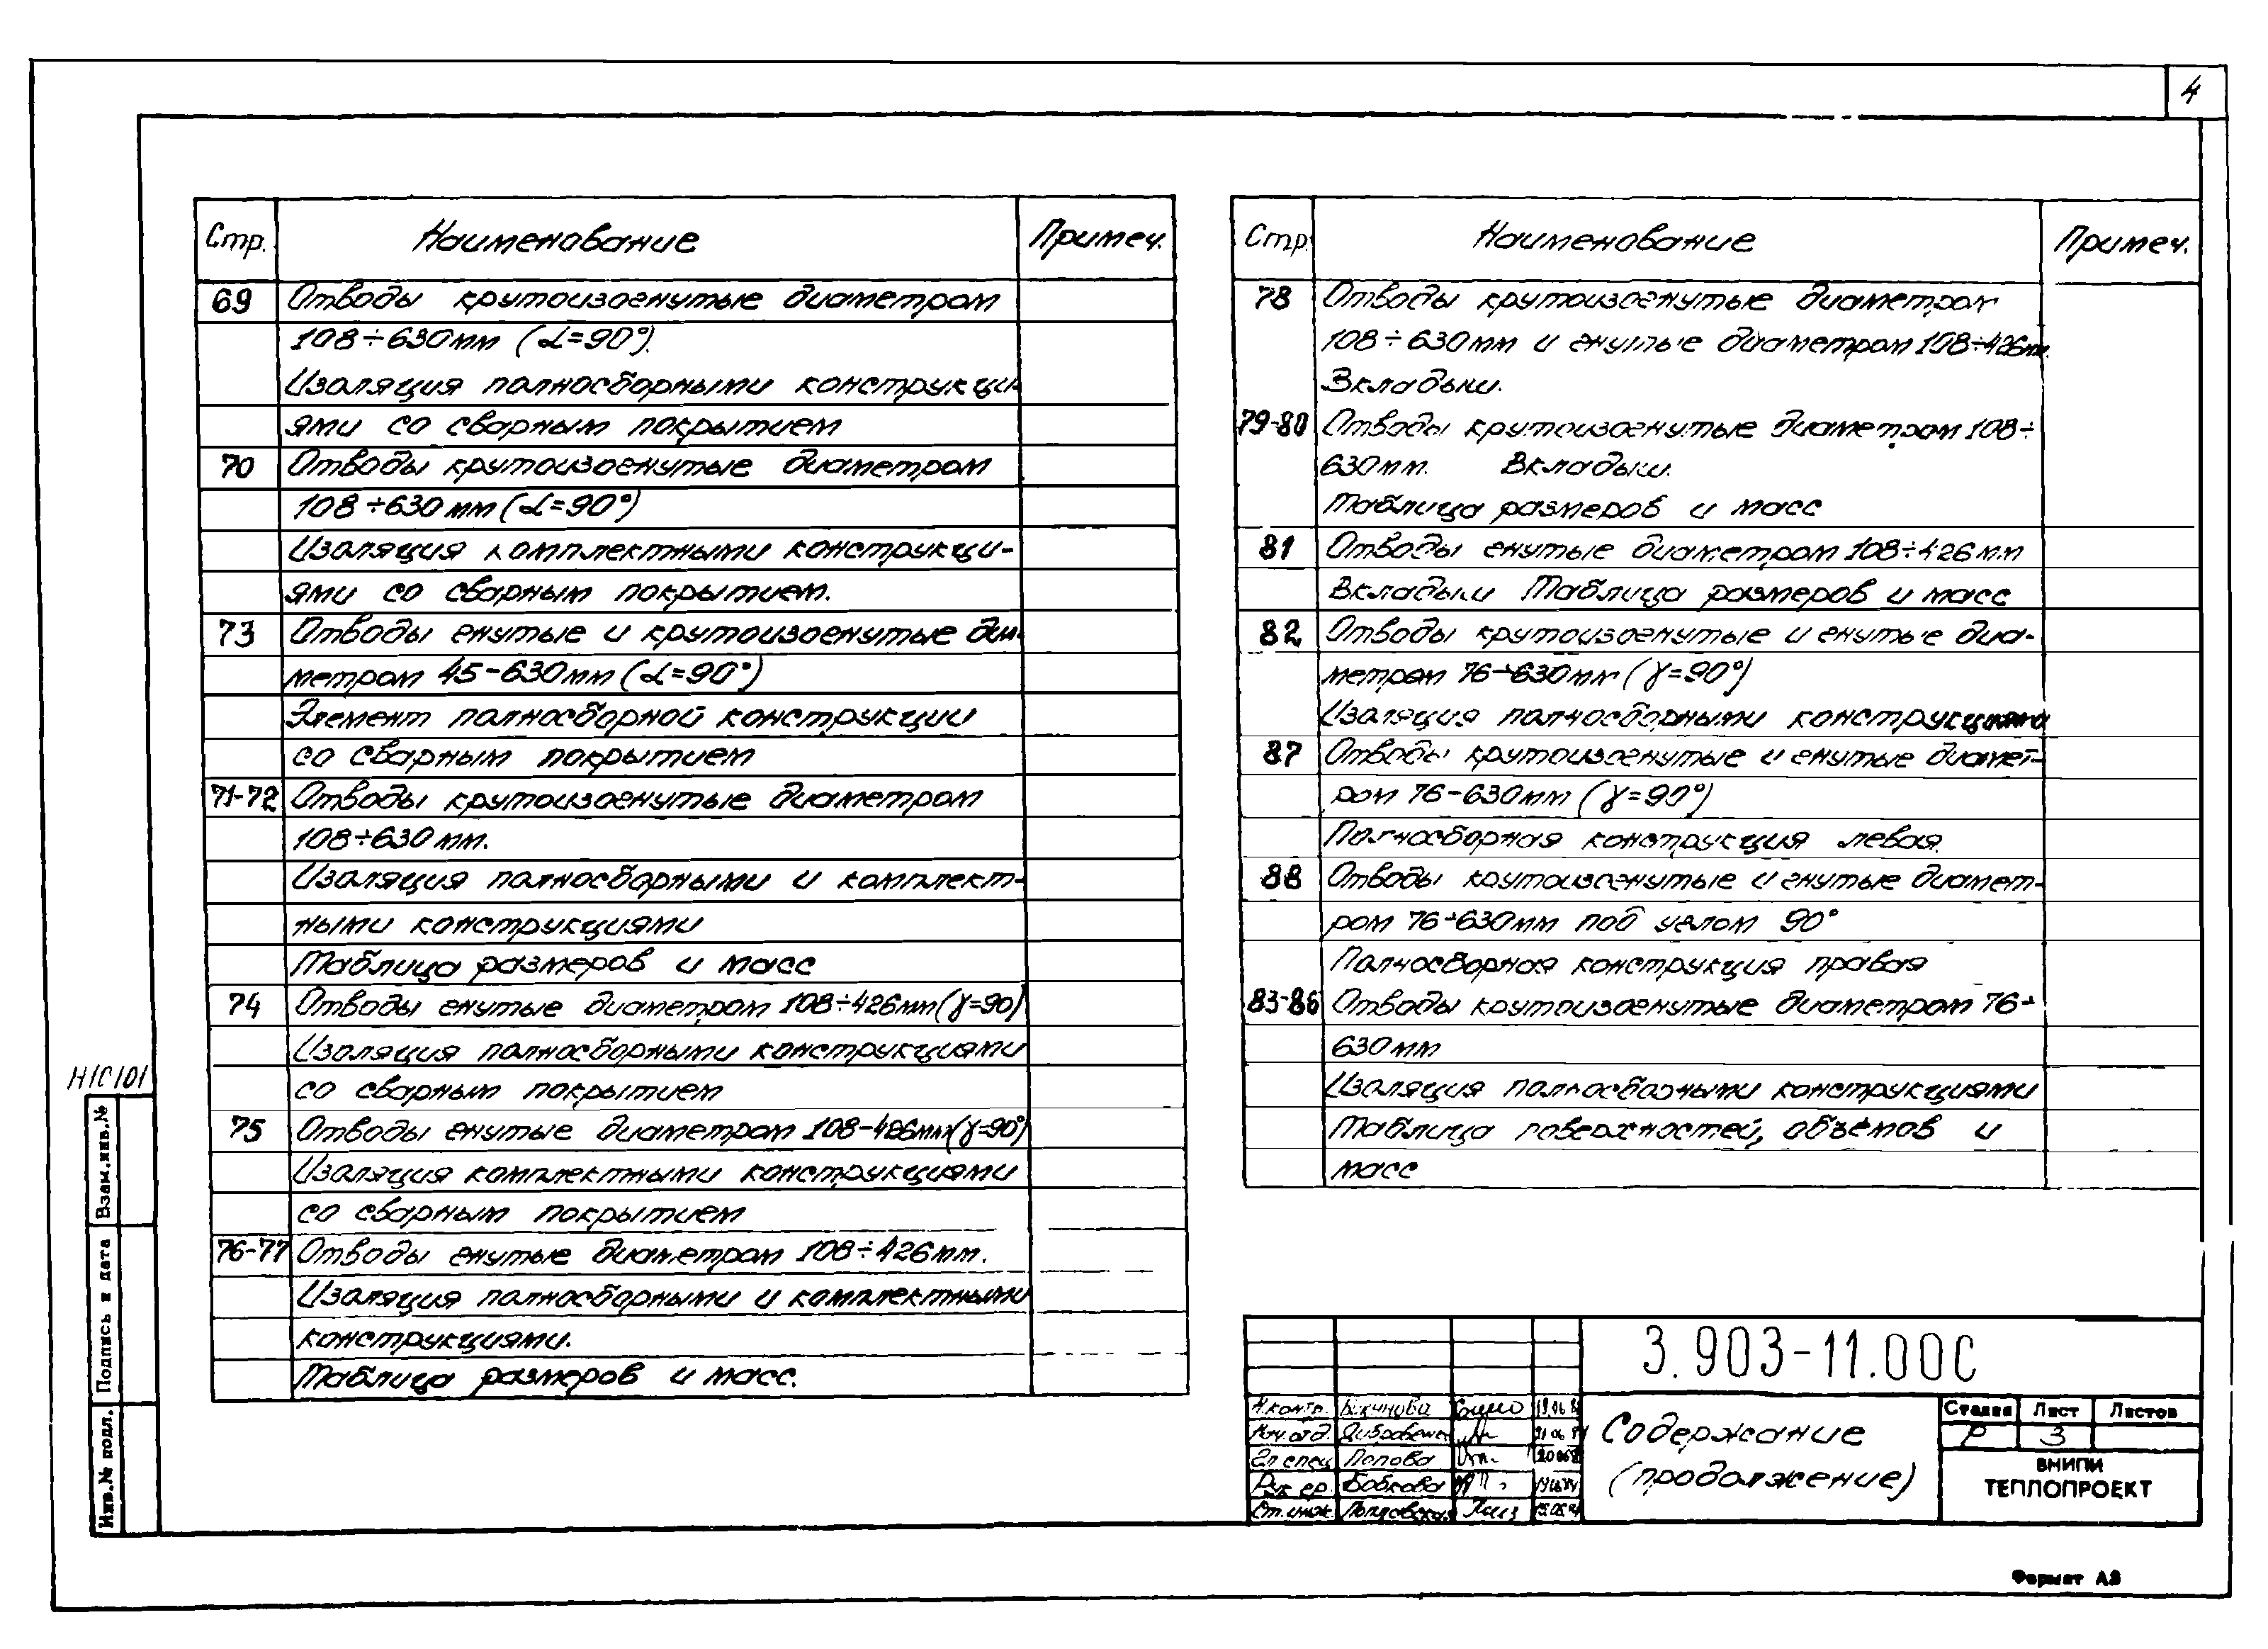 4
Стр. Наименование Примеч.
69 Отводы крутоизогнутые диаметром
108÷630мм (α=90°).
Изоляция полносборными конструкци-
ями со сварным покрытием
70 Отводы крутоизогнутые диаметром
108÷630мм (α=90°)
Изоляция комплектными конструкци-
ями со сварным покрытием.
73 Отводы гнутые и крутоизогнутые диа-
метром 45-630мм (α=90°)
Элемент полносборной конструкции
со сварным покрытием
71-72 Отводы крутоизогнутые диаметром
108÷630мм.
Изоляция полносборными и комплект-
ными конструкциями
Таблица размеров и масс
74 Отводы гнутые диаметром 108÷426мм(γ=90)
Изоляция полносборными конструкциями
со сварным покрытием
75 Отводы гнутые диаметром 108-426мм(γ=90°)
Изоляция комплектными конструкциями
со сварным покрытием
76-77 Отводы гнутые диаметром 108÷426мм.
Изоляция полносборными и комплектными
конструкциями.
Таблица размеров и масс.
Стр. Наименование Примеч.
78 Отводы крутоизогнутые диаметром
108÷630мм и гнутые диаметром 108÷426мм.
Вкладыш.
79-80 Отводы крутоизогнутые диаметром 108÷
630мм. Вкладыш.
Таблица размеров и масс
81 Отводы гнутые диаметром 108÷426мм
Вкладыш Таблица размеров и масс
82 Отводы крутоизогнутые и гнутые диа-
метром 76÷630мм (γ=90°)
Изоляция полносборными конструкциями
87 Отводы крутоизогнутые и гнутые диамет-
ром 76-630мм (γ=90°)
Полносборная конструкция левая.
88 Отводы крутоизогнутые и гнутые диамет-
ром 76÷630мм под углом 90°
Полносборная конструкция правая
83-86 Отводы крутоизогнутые диаметром 76÷
630мм
Изоляция полносборными конструкциями
Таблица поверхностей, объёмов и
масс
Н10101
Взам.инв.№
Подпись и дата
Инв.№ подл.
3.903-11.00С
Н.контр.
Нач.отд.
Гл спец Попова
Рук гр. Бобкова
Ст.инж.
Содержание
(продолжение)
Стадия Лист Листов
Р 3
ВНИПИ
ТЕПЛОПРОЕКТ
Формат А3